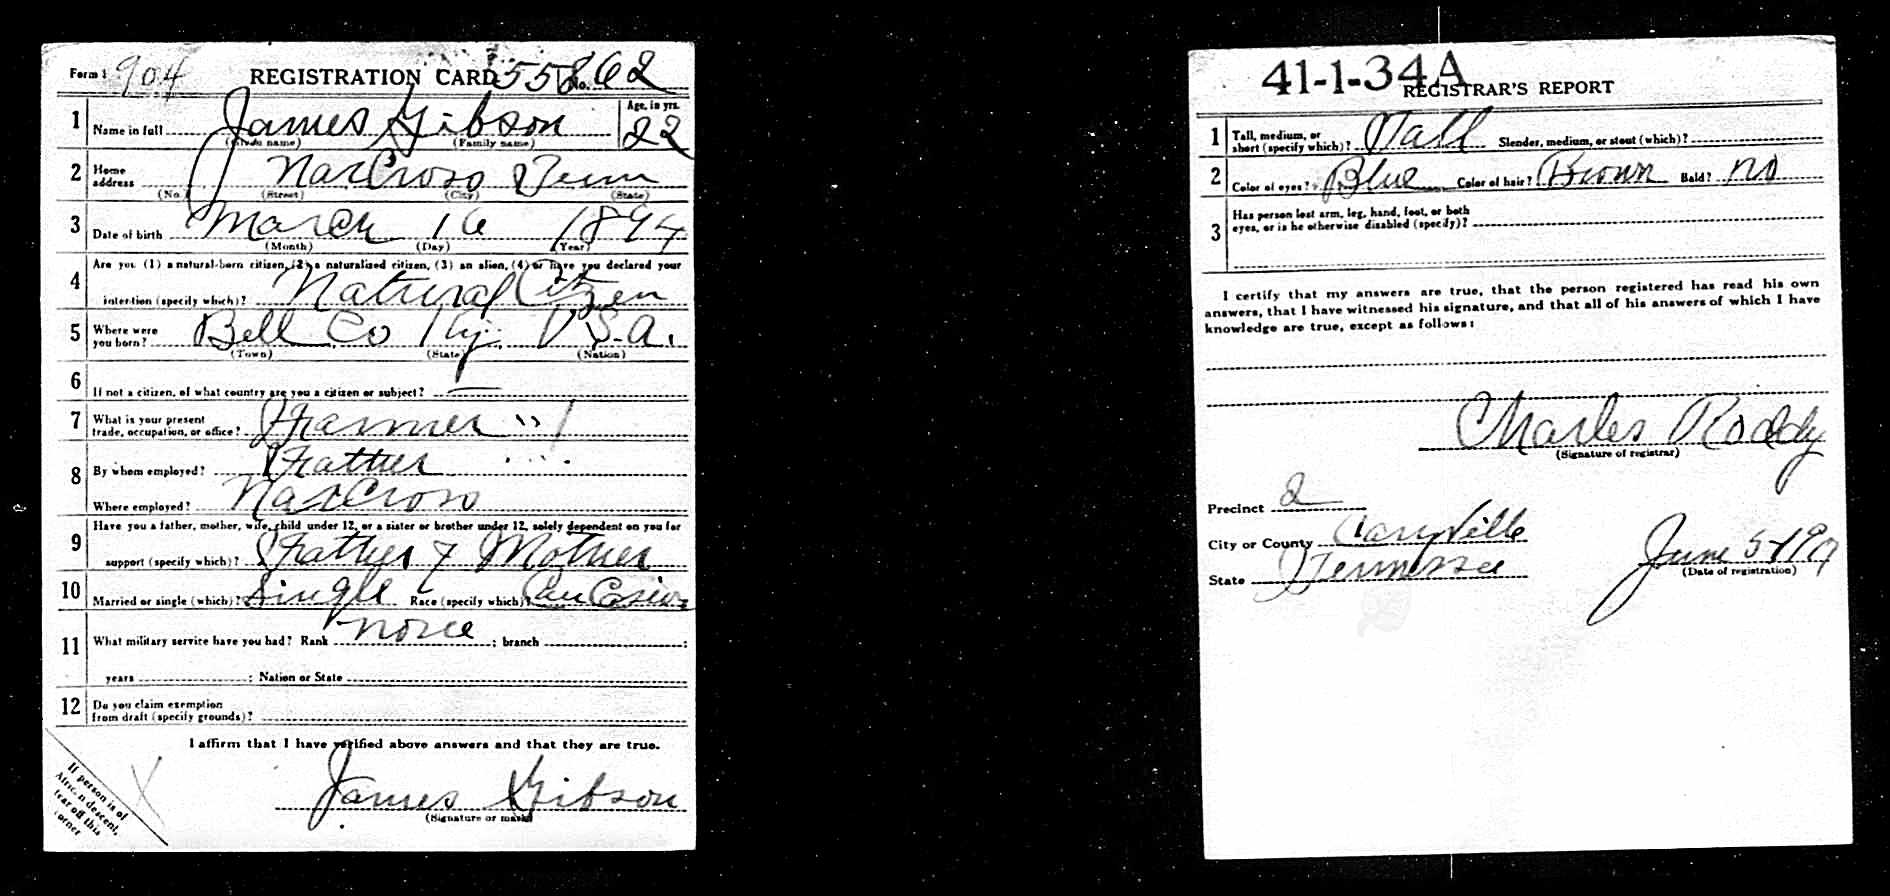 Form 1 904 REGISTRATION CARD No. 55862
1 Name in full James Gibson Age, in yrs. 22
(Given name) (Family name)
2 Home address NarCross Tenn
(No.) (Street) (City) (State)
3 Date of birth March 16 1894
(Month) (Day) (Year)
4 Are you (1) a natural-born citizen, (2) a naturalized citizen, (3) an alien, (4) or have you declared your
intention (specify which)? Natural Citizen
5 Where were you born? Bell Co Ky. U.S.A.
(Town) (State) (Nation)
6 If not a citizen, of what country are you a citizen or subject? —
7 What is your present trade, occupation, or office? Farmer
8 By whom employed? Father
Where employed? NarCross
9 Have you a father, mother, wife, child under 12, or a sister or brother under 12, solely dependent on you for
support (specify which)? Father & Mother
10 Married or single (which)? Single Race (specify which)? CauCasian
11 What military service have you had? Rank None ; branch ;
years ; Nation or State
12 Do you claim exemption
from draft (specify grounds)?
I affirm that I have verified above answers and that they are true.
James Gibson
(Signature or mark)
If person is of
African descent,
tear off this
corner
X
41-1-34A
REGISTRAR'S REPORT
1 Tall, medium, or short (specify which)? Tall Slender, medium, or stout (which)?
2 Color of eyes? Blue Color of hair? Brown Bald? no
3 Has person lost arm, leg, hand, foot, or both
eyes, or is he otherwise disabled (specify)?
I certify that my answers are true, that the person registered has read his own
answers, that I have witnessed his signature, and that all of his answers of which I have
knowledge are true, except as follows:
Charles Roddy
(Signature of registrar)
Precinct 2
City or County CaryVille
State Tennessee
June 5-1917
(Date of registration)